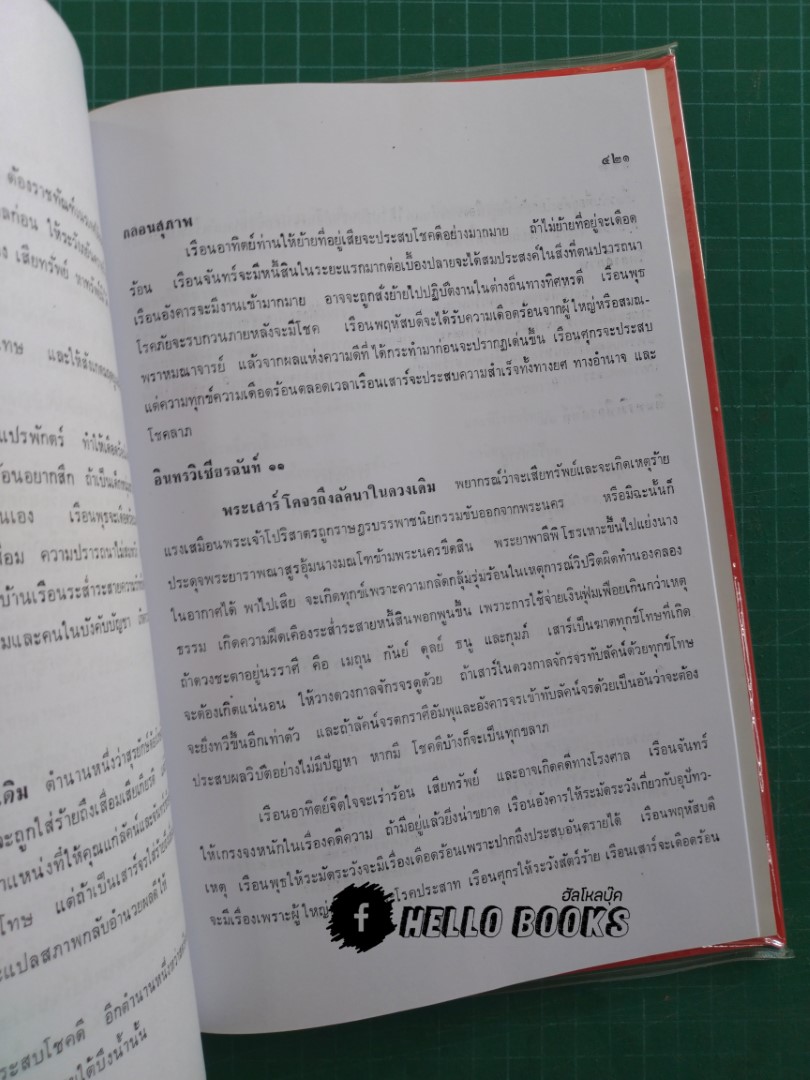 ต้องราชทัณฑ์
ลก่อน ให้ระวัง
อง เสียทรัพย์
โทษ และให้สังเกต
แปรพักตร์ ทำให้เดือด
ร้อนอยากสึก ถ้าเป็นเด็ก
นเอง เรือนพุธจะเดือด
สื่อม ความปรารถนาไม่
บ้านเรือนระส่ำระสาย
มและคนในบังคับบัญชา
ดิม ตำนานหนึ่งว่า
จะถูกใส่ร้ายถึงเสื่อมเสียเกียรติ
ำแหน่งที่ให้คุณแก่ลัคน์และจันทร์
โทษ แต่ถ้าเป็นเสาร์จร
ะแปลสภาพกลับอำนวยผลดีให้
ระสบโชคดี อีกตำนานหนึ่งว่า
ใต้บึงน้ำนั้น
๔๒๑
กลอนสุภาพ
เรือนอาทิตย์ท่านให้ย้ายที่อยู่เสียจะประสบโชคดีอย่างมากมาย ถ้าไม่ย้ายที่อยู่จะเดือด
ร้อน เรือนจันทร์จะมีหนี้สินในระยะแรกมากต่อเบื้องปลายจะได้สมประสงค์ในสิ่งที่ตนปรารถนา
เรือนอังคารจะมีงานเข้ามากมาย อาจจะถูกสั่งย้ายไปปฏิบัติงานในต่างถิ่นทางทิศหรดี เรือนพุธ
โรคภัยจะรบกวนภายหลังจะมีโชค เรือนพฤหัสบดีจะได้รับความเดือดร้อนจากผู้ใหญ่หรือสมณ-
พราหมณาจารย์ แล้วจากผลแห่งความดีที่ได้กระทำมาก่อนจะปรากฏเด่นขึ้น เรือนศุกรจะประสบ
แต่ความทุกข์ความเดือดร้อนตลอดเวลาเรือนเสาร์จะประสบความสำเร็จทั้งทางยศ ทางอำนาจ และ
โชคลาภ
อินทรวิเชียรฉันท์ ๑๑
พระเสาร์โคจรถึงลัคนาในดวงเดิม พยากรณ์ว่าจะเสียทรัพย์และจะเกิดเหตุร้าย
แรงเสมือนพระเจ้าโปริสาตรถูกราษฎรบรรพาชนิยกรรมขับออกจากพระนคร หรือมิฉะนั้นก็
ประดุจพระยาราพณาสูรอุ้มนางมณโฑข้ามพระนครขีดสิน พระยาพาลีพิโธรเหาะขึ้นไปแย่งนาง
ในอากาศได้ พาไปเสีย จะเกิดทุกข์เพราะความกลัดกลุ้มรุ่มร้อนในเหตุการณ์วิปริตผิดทำนองคลอง
ธรรม เกิดความฝืดเคืองระส่ำระสายหนี้สินพอกพูนขึ้น เพราะการใช้จ่ายเงินฟุ่มเฟือยเกินกว่าเหตุ
ถ้าดวงชะตาอยู่นรราศี คือ เมถุน กันย์ ตุลย์ ธนู และกุมภ์ เสาร์เป็นฆาตทุกข์โทษที่เกิด
จะต้องเกิดแน่นอน ให้วางดวงกาลจักรจรดูด้วย ถ้าเสาร์ในดวงกาลจักรจรทับลัคน์ด้วยทุกข์โทษ
จะยิ่งทวีขึ้นอีกเท่าตัว และถ้าลัคน์จรตกราศีอัมพุและอังคารจรเข้าทับลัคน์จรด้วยเป็นอันว่าจะต้อง
ประสบผลวิบัติอย่างไม่มีปัญหา หากมี โชคดีบ้างก็จะเป็นทุกขลาภ
เรือนอาทิตย์จิตใจจะเร่าร้อน เสียทรัพย์ และอาจเกิดคดีทางโรงศาล เรือนจันทร์
ให้เกรงจงหนักในเรื่องคดีความ ถ้ามีอยู่แล้วยิ่งน่าขยาด เรือนอังคารให้ระมัดระวังเกี่ยวกับอุปัทว-
เหตุ เรือนพุธให้ระมัดระวังจะมีเรื่องเดือดร้อนเพราะปากถึงประสบอันตรายได้ เรือนพฤหัสบดี
จะมีเรื่องเพราะผู้ใหญ่ โรคประสาท เรือนศุกรให้ระวังสัตว์ร้าย เรือนเสาร์จะเดือดร้อน
ฮัลโหลบุ๊ค
f HELLO BOOKS